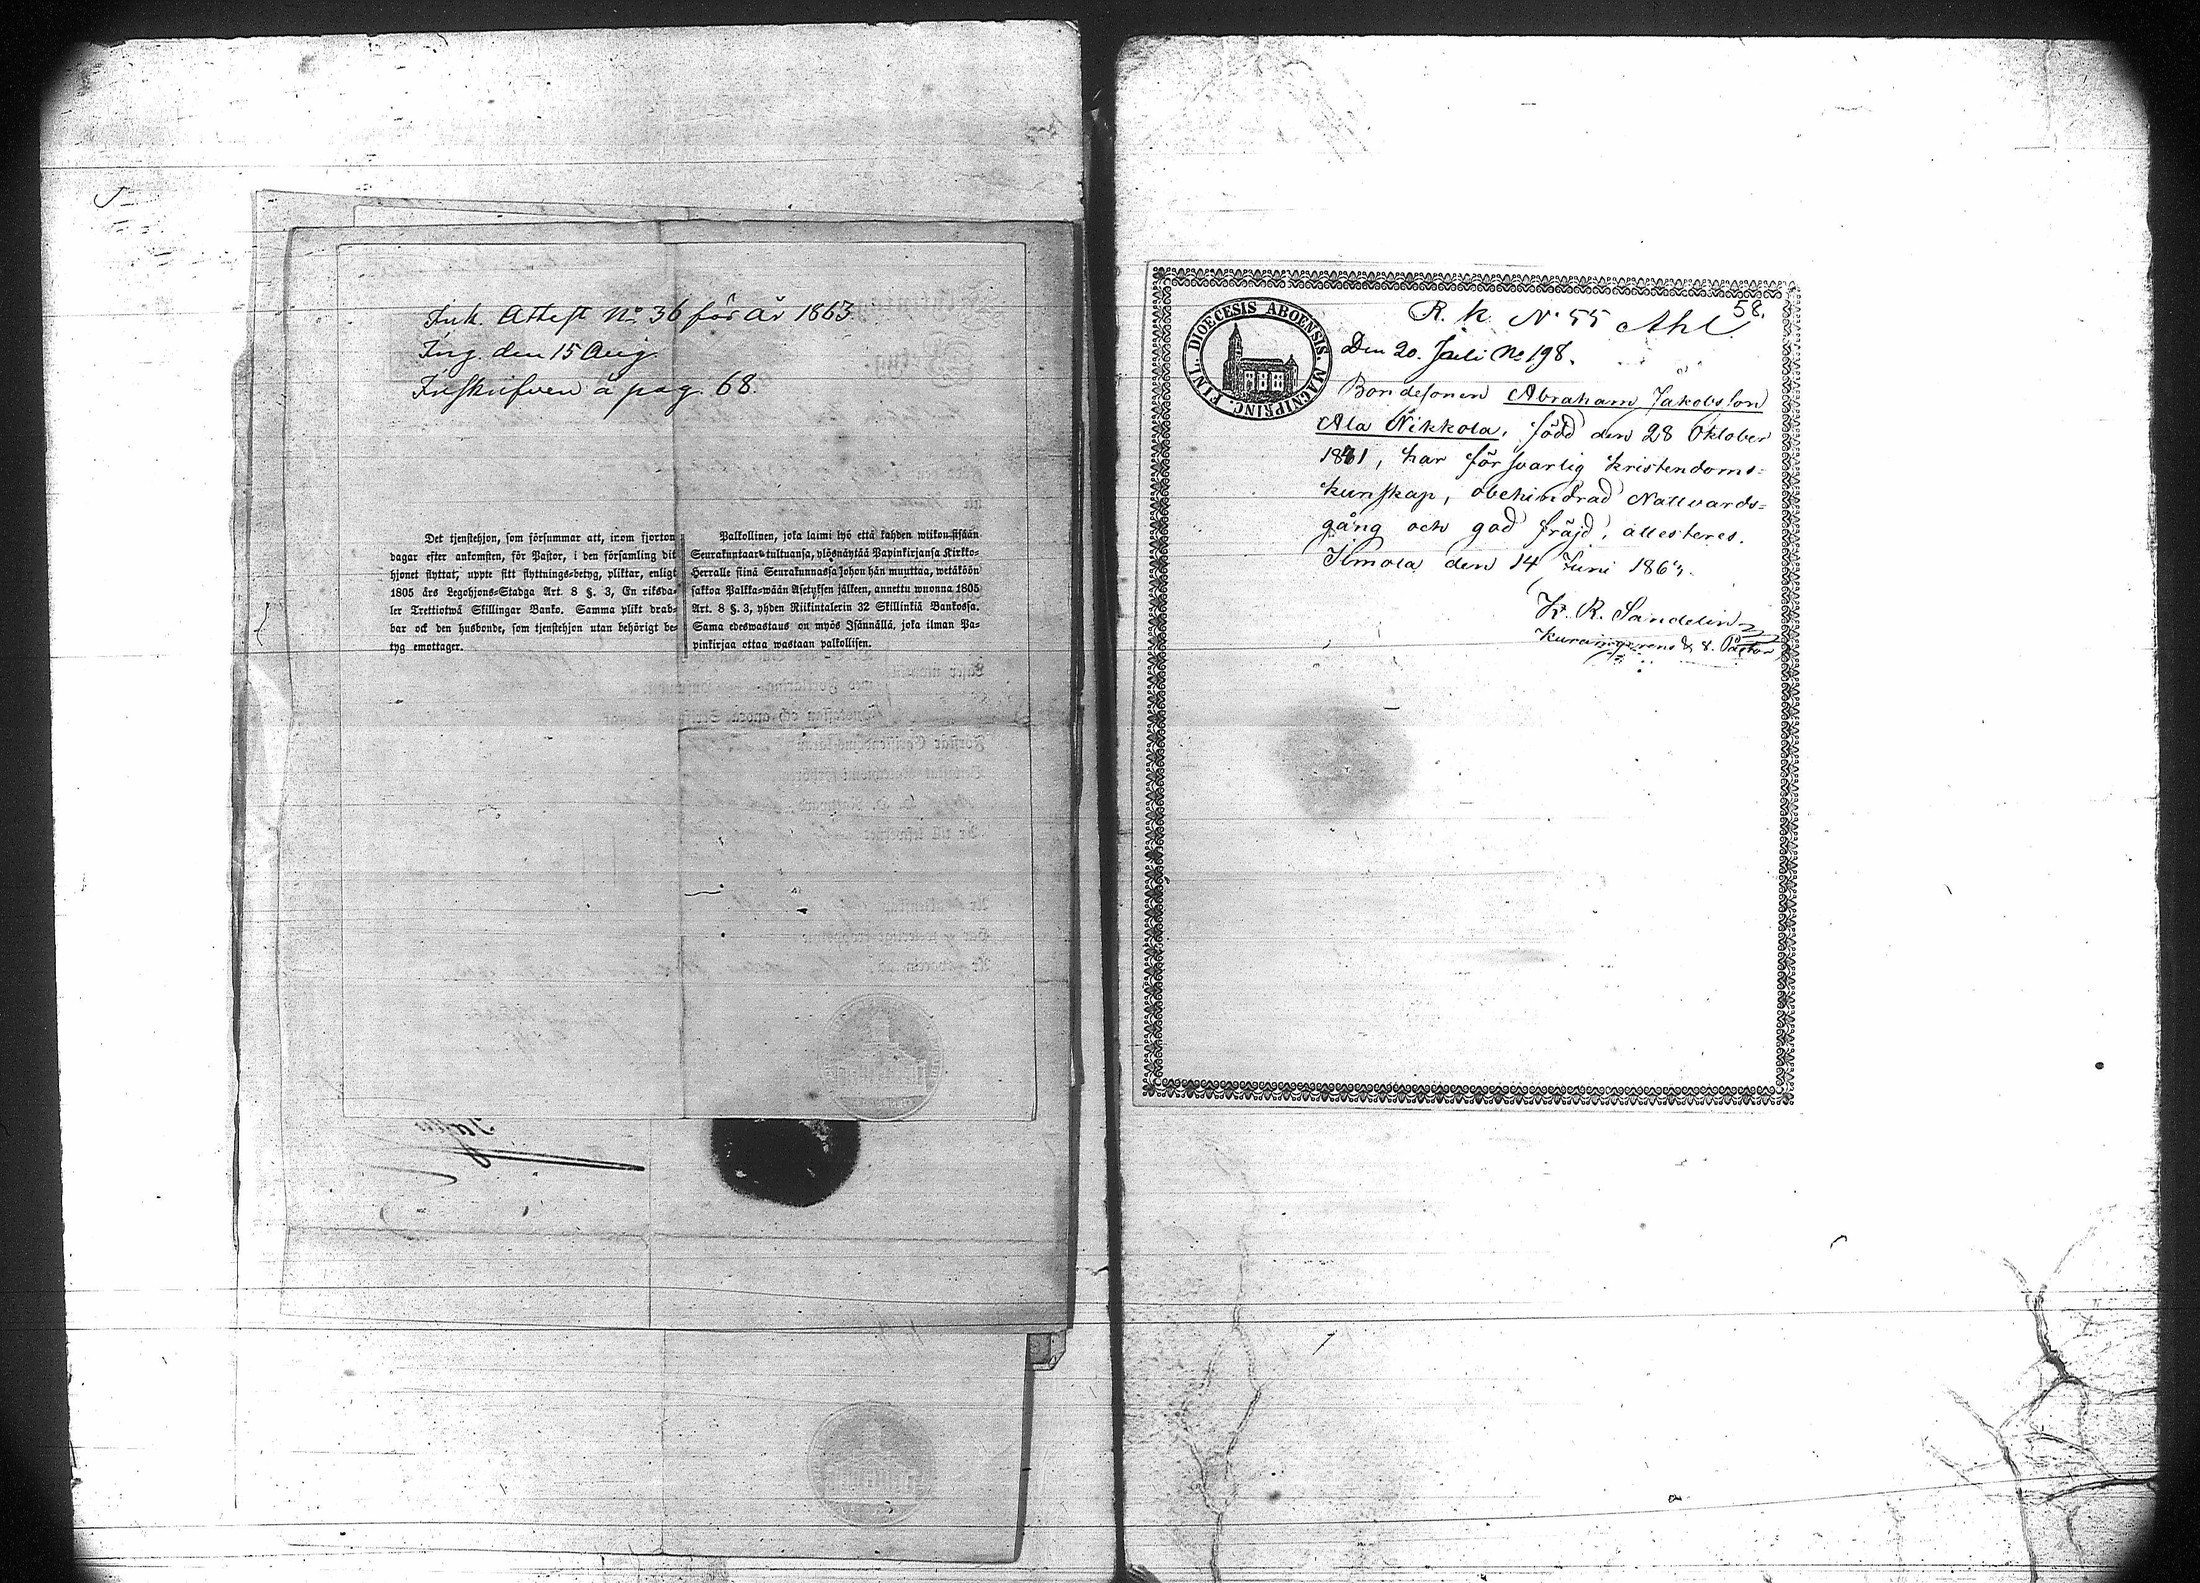 Ink. Attest No 36 för år 1863
Ing. den 15 Aug.
Inskrifven å pag. 68.
Det tjenstehjon, som försummar att, inom fjorton
dagar efter ankomsten, för Pastor, i den församling dit
hjonet flyttat, uppte sitt flyttnings-betyg, pliktar, enligt
1805 års Legohjons-Stadga Art. 8 §. 3, En riksda-
ler Trettiotwå Skillingar Banko. Samma plikt drab-
bar ock den husbonde, som tjenstehjon utan behörigt be-
tyg emottager.
Palkollinen, joka laimi lyö että kahden wiikon sisään
Seurakuntaan tultuansa, ylösnäytää Papinkirjansa Kirkko-
Herralle siinä Seurakunnassa johon hän muuttaa, wetäköön
sakkoa Palkka-wään Asetuksen jälkeen, annettu wuonna 1805
Art. 8 §. 3, yhden Riikintalerin 32 Skillinkiä Bankossa.
Sama edeswastaus on myös Isännällä, joka ilman Pa-
pinkirjaa ottaa wastaan palkollisen.
58.
R. k. No 55 Ahl.
FINL. DIOECESIS ABOENSIS. MAGNIPRINC.
Den 20. Juli No 198.
Bondesonen Abraham Jakobsson
Ala Nikkola, född den 28 Oktober
1841, har försvarlig kristendoms-
kunskap, obehindrad Nattvards-
gång och god fräjd, attesteres.
Ilmola den 14 Juni 186
K. R. Sandelin
Pastor